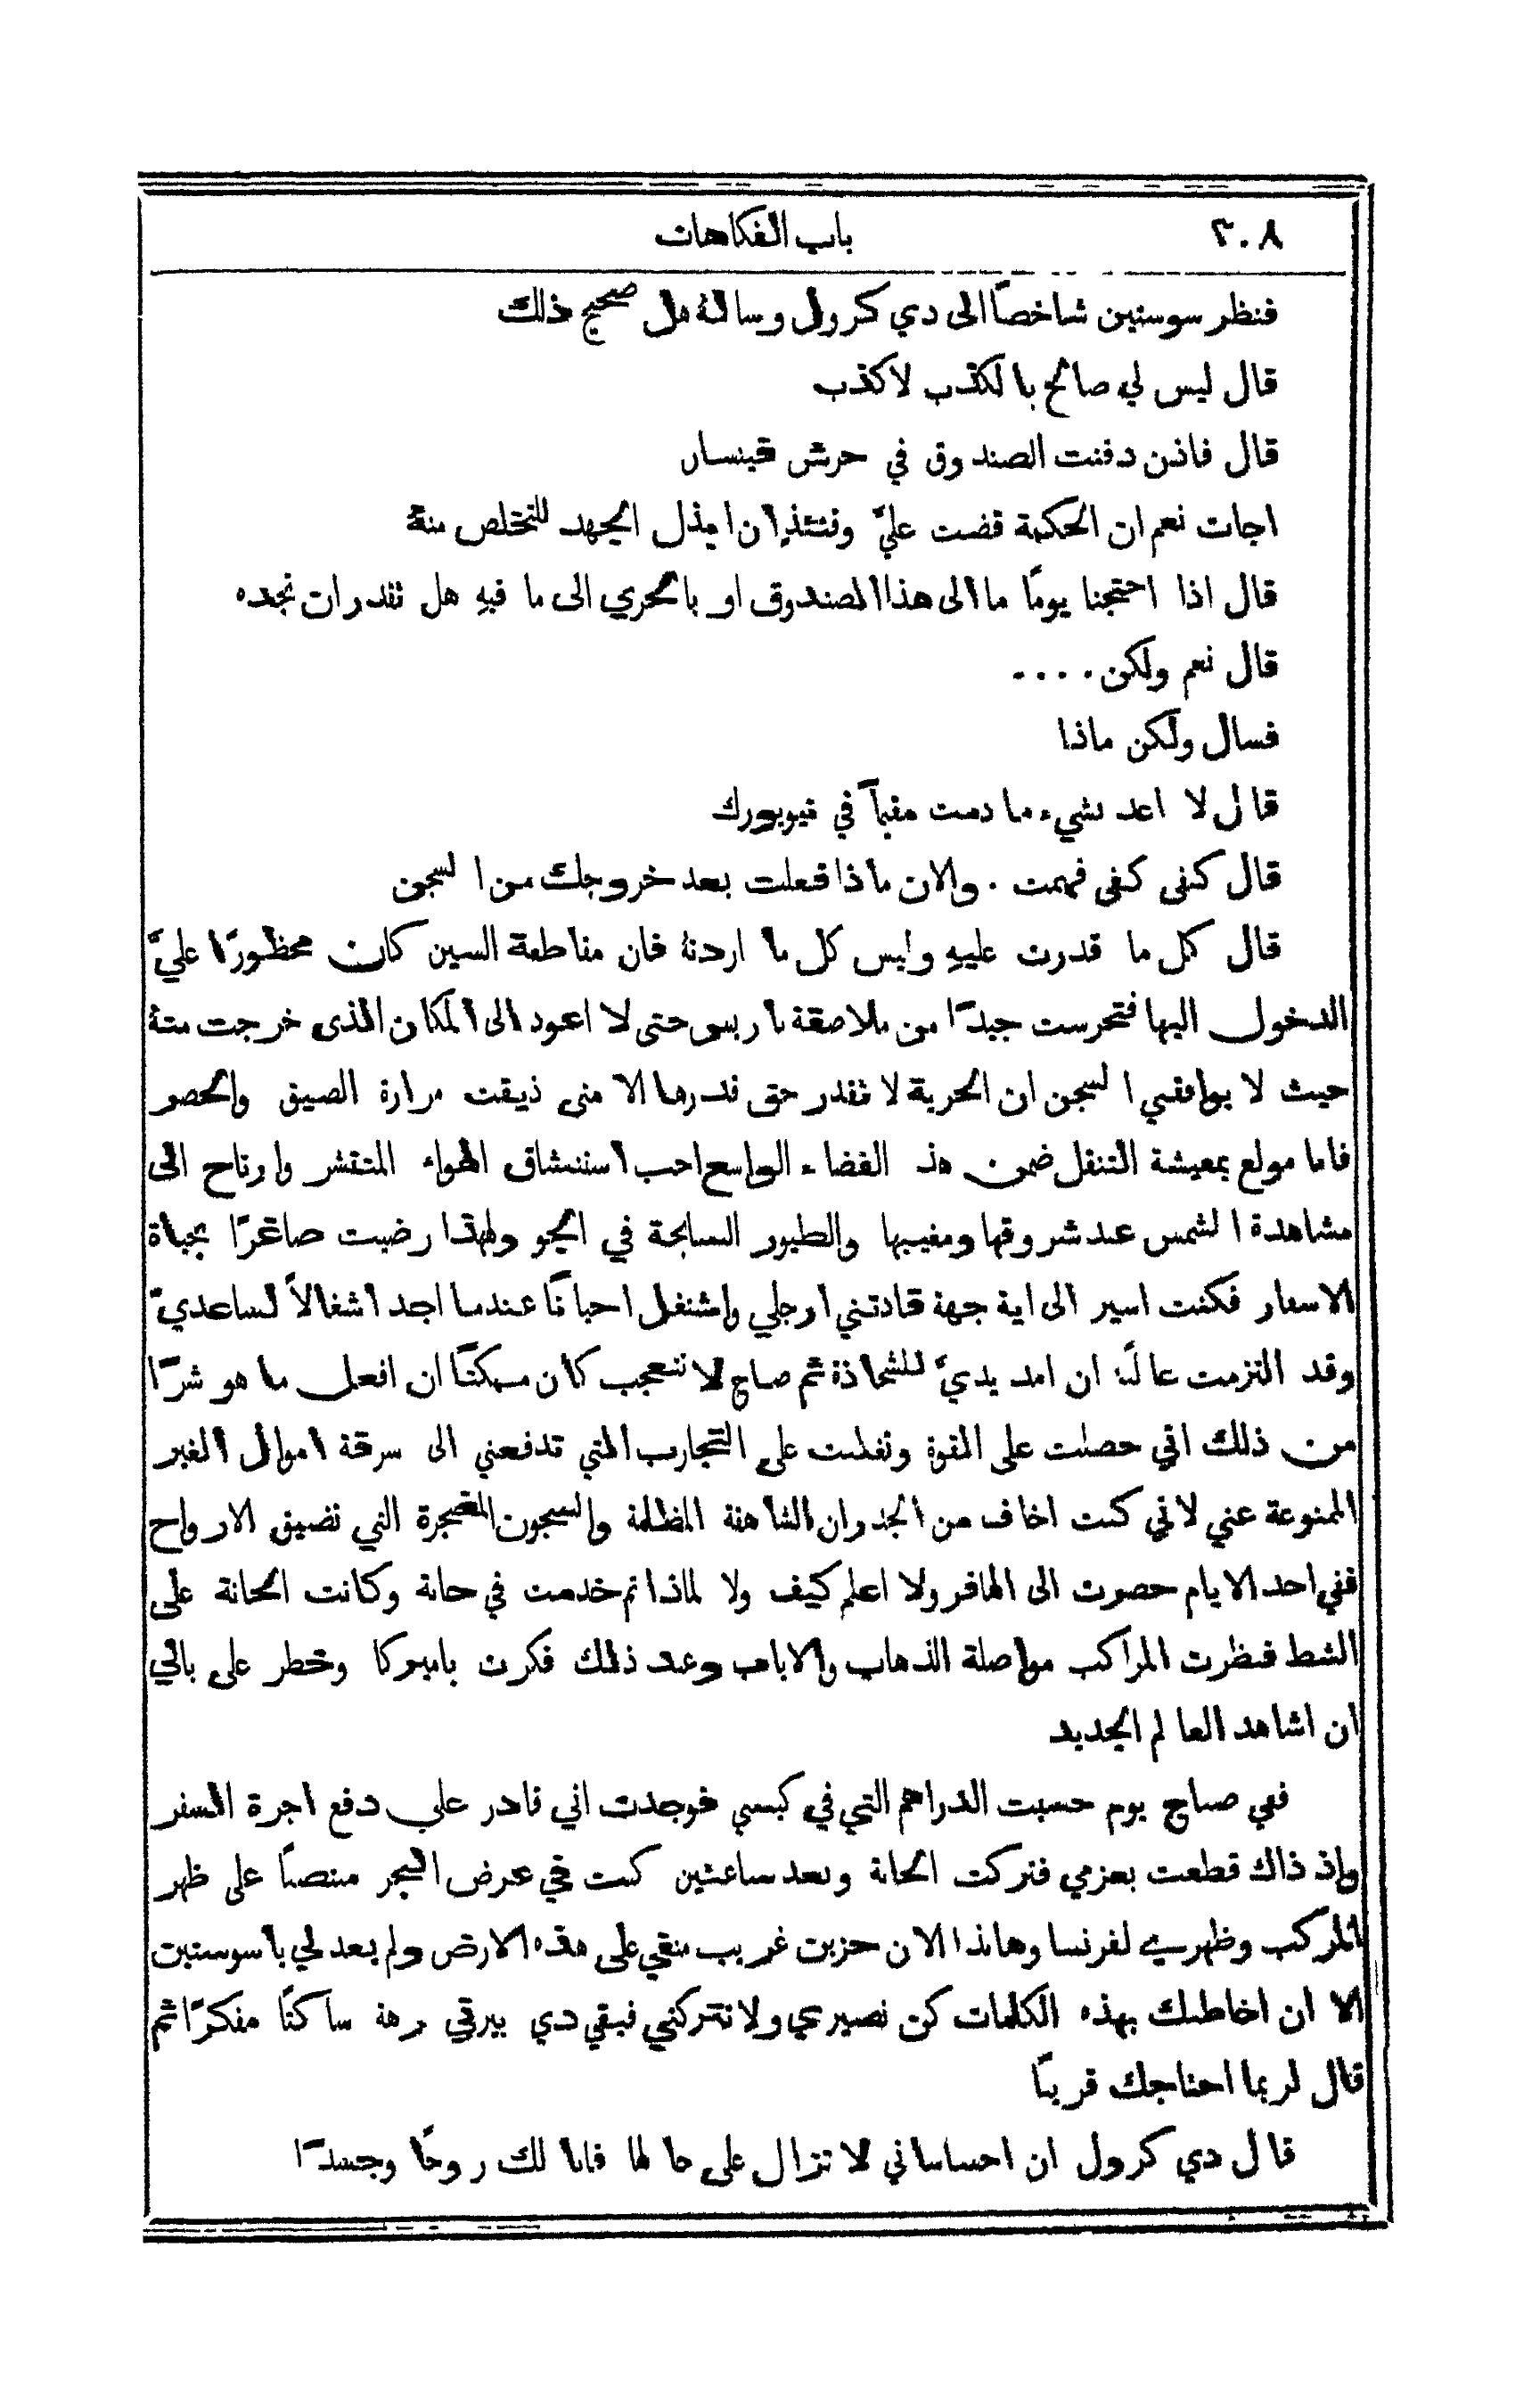 ٣٠٨ باب الفكاهات
فنظر سوستين شاخصاً الى دي كرول وسالهُ هل صحيح ذلك
قال ليس لي صالح بالكذب لاكذب
قال فاذن دفنت الصندوق في حرش فينسان
اجاب نعم ان الحكمة قضت عليَّ وقتئذٍ ان ابذل الجهد للتخلص منهُ
قال اذا احتجنا يوماً ما الى هذا الصندوق او بالحري الى ما فيهِ هل تقدر ان تجده
قال نعم ولكن ....
فسال ولكن ماذا
قال لا اعد بشيء ما دمت مقيماً في نيويورك
قال كفى كفى فهمت . والان ماذا فعلت بعد خروجك من السجن
قال كل ما قدرت عليهِ وليس كل ما اردتهُ فان مقاطعة السين كان محظوراً عليَّ
الدخول اليها فتحرست جيداً من ملاصقة باريس حتى لا اعود الى المكان الذي خرجت منهُ
حيث لا يوافقني السجن ان الحرية لا تقدر حق قدرها الا متى ذيقت مرارة الضيق والحصر
فانا مولع بمعيشة التنقل ضمن هذ الفضاء الواسع احب استنشاق الهواء المنتشر وارتاح الى
مشاهدة الشمس عند شروقها ومغيبها والطيور السابحة في الجو ولهذا رضيت صاغراً بحياة
الاسفار فكنت اسير الى اية جهة قادتني ارجلي واشتغل احياناً عندما اجد اشغالاً لساعديَّ
وقد التزمت غالباً ان امد يديَّ للشحاذة ثم صاح لا تتعجب كان ممكناً ان افعل ما هو شرّاً
من ذلك اني حصلت على القوة وتغلبت على التجارب التي تدفعني الى سرقة اموال الغير
الممنوعة عني لاني كنت اخاف من الجدران الشاهقة المظلمة والسجون المضجرة التي تضيق الارواح
ففي احد الايام حضرت الى الهافر ولا اعلم كيف ولا لماذا ثم خدمت في حانة وكانت الحانة على
الشط فنظرت المراكب مواصلة الذهاب والاياب وعند ذلك فكرت باميركا وخطر على بالي
ان اشاهد العالم الجديد
ففي صباح يوم حسبت الدراهم التي في كيسي فوجدت اني قادر على دفع اجرة السفر
واذ ذاك قطعت بعزمي فتركت الحانة وبعد ساعتين كنت في عرض البحر منتصباً على ظهر
المركب وظهري لفرنسا وهانذا الان حزين غريب منفي على هذه الارض ولم يعد لي يا سوستين
الا ان اخاطبك بهذه الكلمات كن نصيري ولا تتركني فبقي دي بيرقي برهة ساكتاً مفكراً ثم
قال لربما احتاجك قريباً
قال دي كرول ان احساساتي لا تزال على حالها فانا لك روحاً وجسداً